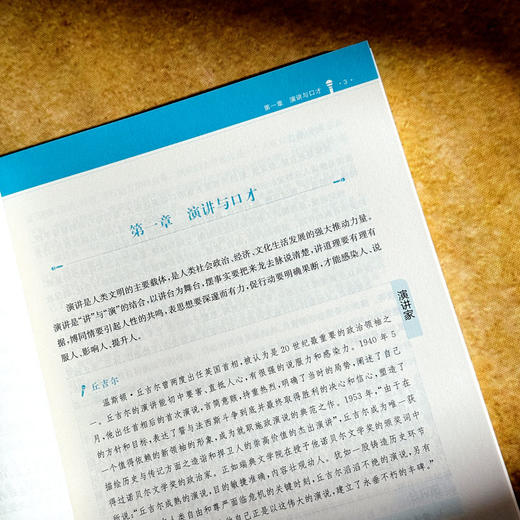 第一章 演讲与口才 ·3·
第一章 演讲与口才
演讲是人类文明的主要载体,是人类社会政治、经济、文化生活发展的强大推动力量。
演讲是“讲”与“演”的结合,以讲台为舞台,摆事实要把来龙去脉说清楚,讲道理要有理有
据,博同情要引起人性的共鸣,表思想要深邃而有力,促行动要明确果断,才能感染人、说
服人、影响人、提升人。
演讲家
丘吉尔
温斯顿·丘吉尔曾两度出任英国首相,被认为是20世纪最重要的政治领袖之
一。丘吉尔的演讲能切中要害、直抵人心,有很强的说服力和感染力。1940年5
月,他出任首相后的首次演说,言简意赅,持重热烈,明确了当时的局势,阐述了自己
的方针和目标,表达了誓与法西斯斗争到底并最终取得胜利的决心和信心,塑造了
一个值得依赖的新领袖的形象,成为就职施政演说的典范之作。1953年,“由于在
描绘历史与传记方面之造诣和捍卫人的崇高价值的杰出演讲”,丘吉尔成为唯一获
得过诺贝尔文学奖的政治家。正如瑞典文学院在授予他诺贝尔文学奖的颁奖词中
所说:“丘吉尔成熟的演说,目的敏捷准确,内容壮观动人。犹如一股铸造历史环节
人类自由和尊严面临危机的关键时刻,丘吉尔滔滔不绝的演说,另有
自己正是以这伟大的演说,建立了永垂不朽的丰碑。”